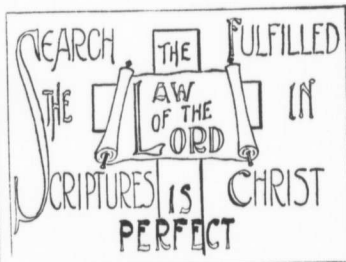 SEARCH
THE
SCRIPTURES
THE
LAW
OF THE
LORD
IS
PERFECT
FULFILLED
IN
CHRIST